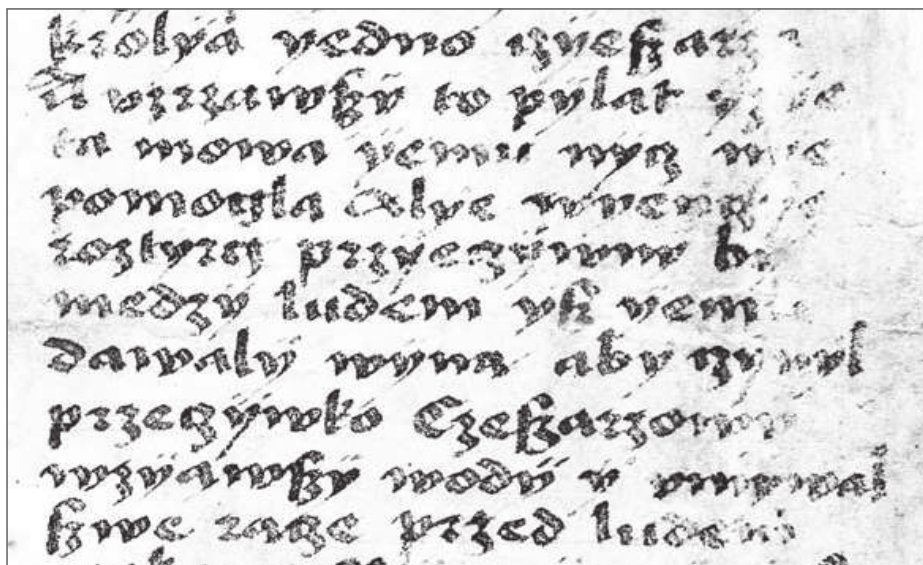 krolya yedno czyeszarz
A vzrzawszy to pylat yz ye
ta mowa yemu nycz nye
pomogla Alye wyencz
roztyrcz przyeczywnw
medzy ludem ysz yem
dawaly wyna aby czynyl
przeczywko Czeszarzowy
wzyawszy wody y vmywal
szwe racze przed ludem